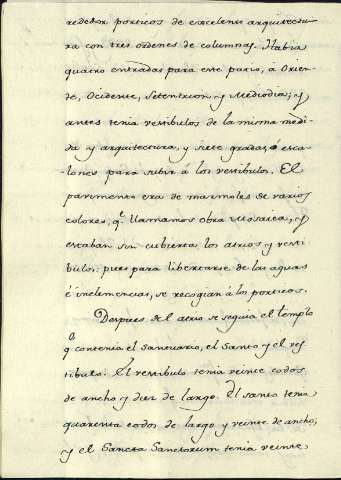 rededor porticos de excelente arquitectu-
ra con tres ordenes de columnas. Habia
quatro entradas para este patio, á Orien-
te, Ocidente, Setentrion y Mediodia; y
antes tenia vestibulos de la misma medi-
da y arquitectura, y siete gradas, ó esca-
lones para subir á los vestibulos. El
pavimento era de marmoles de varios
colores, q.e llamamos obra Mosaica, y
estaban sin cubierta los atrios y vesti-
bulos: pues para libertarse de las aguas
é inclemencias, se recogian á los porticos.
Despues del atrio se seguia el templo
q.e contenia el Santuario, el Santo y el ves
tibulo: El vestibulo tenia veinte codos
de ancho y diez de largo. El santo tenia
quarenta codos de largo y veinte de ancho,
y el Sancta Sanctorum tenia veinte